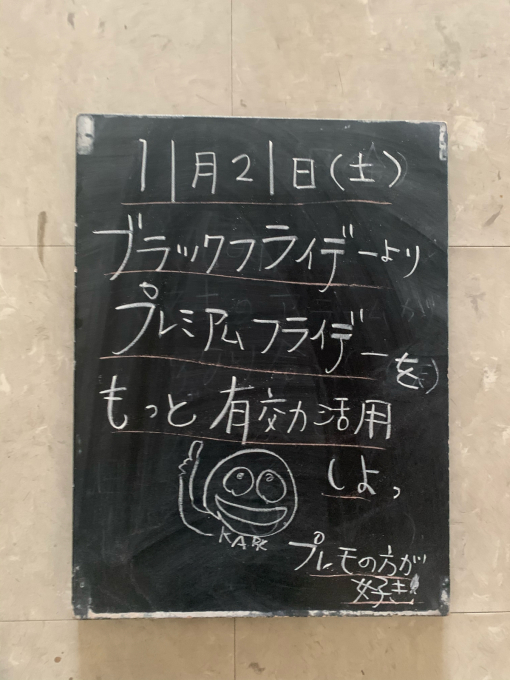 11月21日(土)
ブラックフライデーより
プレミアムフライデーを
もっと有効活用
しよっ
プレモの方が
好き